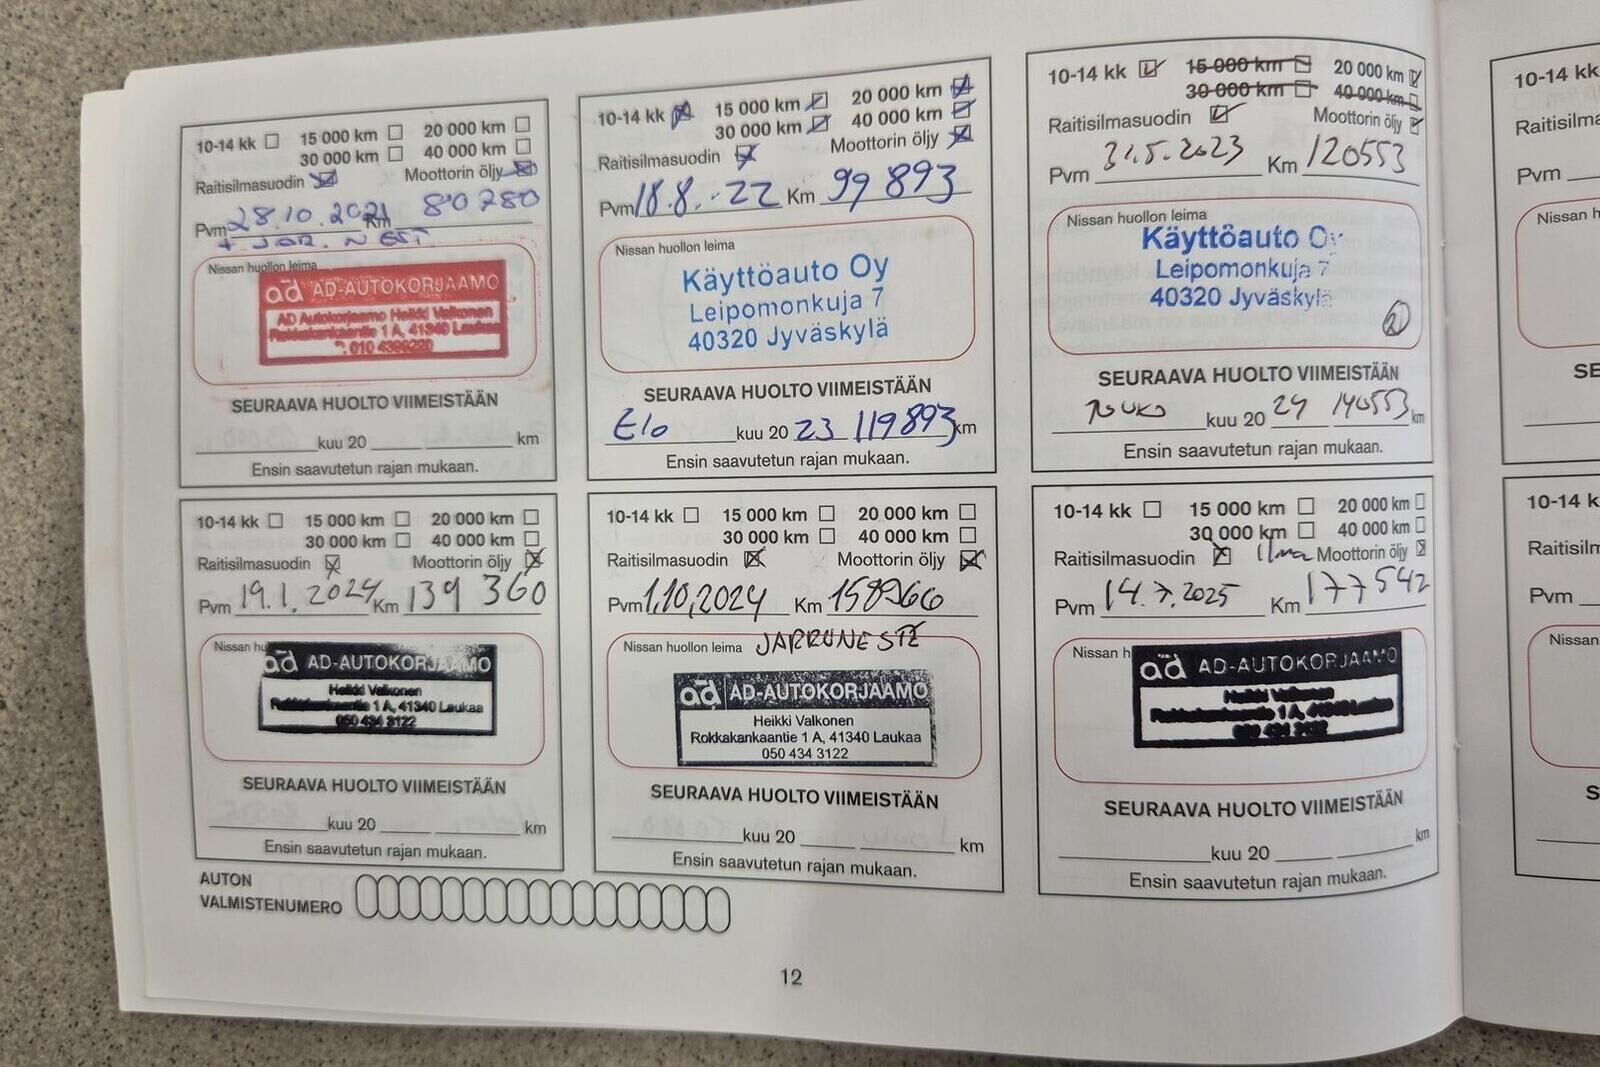 10-14 kk 15 000 km 20 000 km
30 000 km 40 000 km
Raitisilmasuodin Moottorin öljy
Pvm 28.10.2021 Km 80780
+ JAR. NEST.
Nissan huollon leima
ad AD-AUTOKORJAAMO
AD Autokorjaamo Heikki Valkonen
Rokkakankaantie 1 A, 41340 Laukaa
010 4399220
SEURAAVA HUOLTO VIIMEISTÄÄN
kuu 20 km
Ensin saavutetun rajan mukaan.
10-14 kk 15 000 km 20 000 km
30 000 km 40 000 km
Raitisilmasuodin Moottorin öljy
Pvm 18.8.-22 Km 99 893
Nissan huollon leima
Käyttöauto Oy
Leipomonkuja 7
40320 Jyväskylä
SEURAAVA HUOLTO VIIMEISTÄÄN
Elo kuu 20 23 119893 km
Ensin saavutetun rajan mukaan.
10-14 kk 15 000 km 20 000 km
30 000 km 40 000 km
Raitisilmasuodin Moottorin öljy
Pvm 31.5.2023 Km 120553
Nissan huollon leima
Käyttöauto Oy
Leipomonkuja 7
40320 Jyväskylä
SEURAAVA HUOLTO VIIMEISTÄÄN
Touko kuu 20 24 140553 km
Ensin saavutetun rajan mukaan.
10-14 kk 15 000 km 20 000 km
30 000 km 40 000 km
Raitisilmasuodin Moottorin öljy
Pvm 19.1.2024 Km 139 360
Nissan
ad AD-AUTOKORJAAMO
Heikki Valkonen
Rokkakankaantie 1 A, 41340 Laukaa
050 434 3122
SEURAAVA HUOLTO VIIMEISTÄÄN
kuu 20 km
Ensin saavutetun rajan mukaan.
10-14 kk 15 000 km 20 000 km
30 000 km 40 000 km
Raitisilmasuodin Moottorin öljy
Pvm 1.10.2024 Km 158966
Nissan huollon leima JARRUNESTE
ad AD-AUTOKORJAAMO
Heikki Valkonen
Rokkakankaantie 1 A, 41340 Laukaa
050 434 3122
SEURAAVA HUOLTO VIIMEISTÄÄN
kuu 20 km
Ensin saavutetun rajan mukaan.
10-14 kk 15 000 km 20 000 km
30 000 km 40 000 km
Raitisilmasuodin Ilma Moottorin öljy
Pvm 14.7.2025 Km 177542
Nissan
ad AD-AUTOKORJAAMO
Heikki Valkonen
Rokkakankaantie 1 A, 41340 Laukaa
050 434 3122
SEURAAVA HUOLTO VIIMEISTÄÄN
kuu 20 km
Ensin saavutetun rajan mukaan.
AUTON
VALMISTENUMERO
12
10-14 kk
Pvm
Nissan
10-14 k
Pvm
Nissan